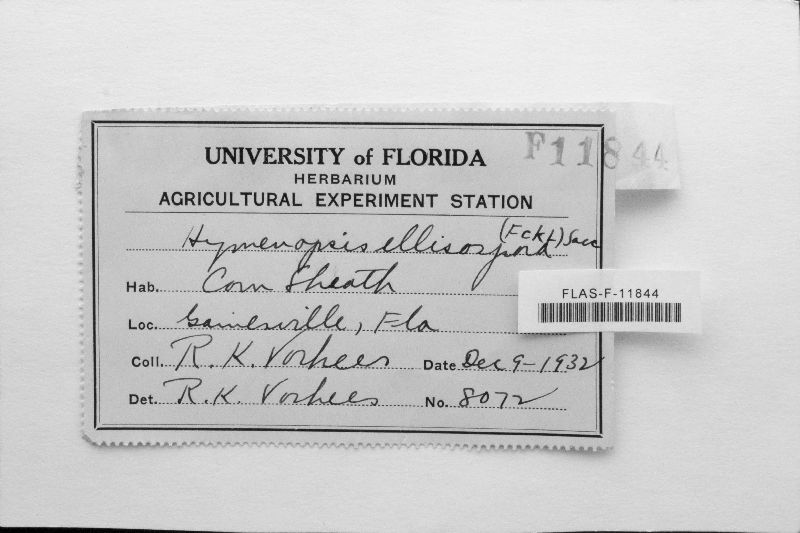 F11844
UNIVERSITY of FLORIDA
HERBARIUM
AGRICULTURAL EXPERIMENT STATION
Hymenopsis ellisospora (Fckl) Sacc
Hab. Corn Sheath
FLAS-F-11844
Loc. Gainesville, Fla
Coll. R. K. Vorhees Date Dec 9-1932
Det. R. K. Vorhees No. 8072